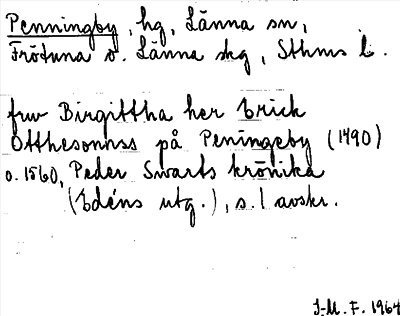 Penningby, hg, Länna sn,
Frötuna o. Länna skg, Sthms l.
fruv Birgittha her Erick
Otthesonnss på Peningeby (1490)
o. 1560, Peder Swarts krönika
(Edéns utg.), s. 1 avskr.
J-M. F. 1964